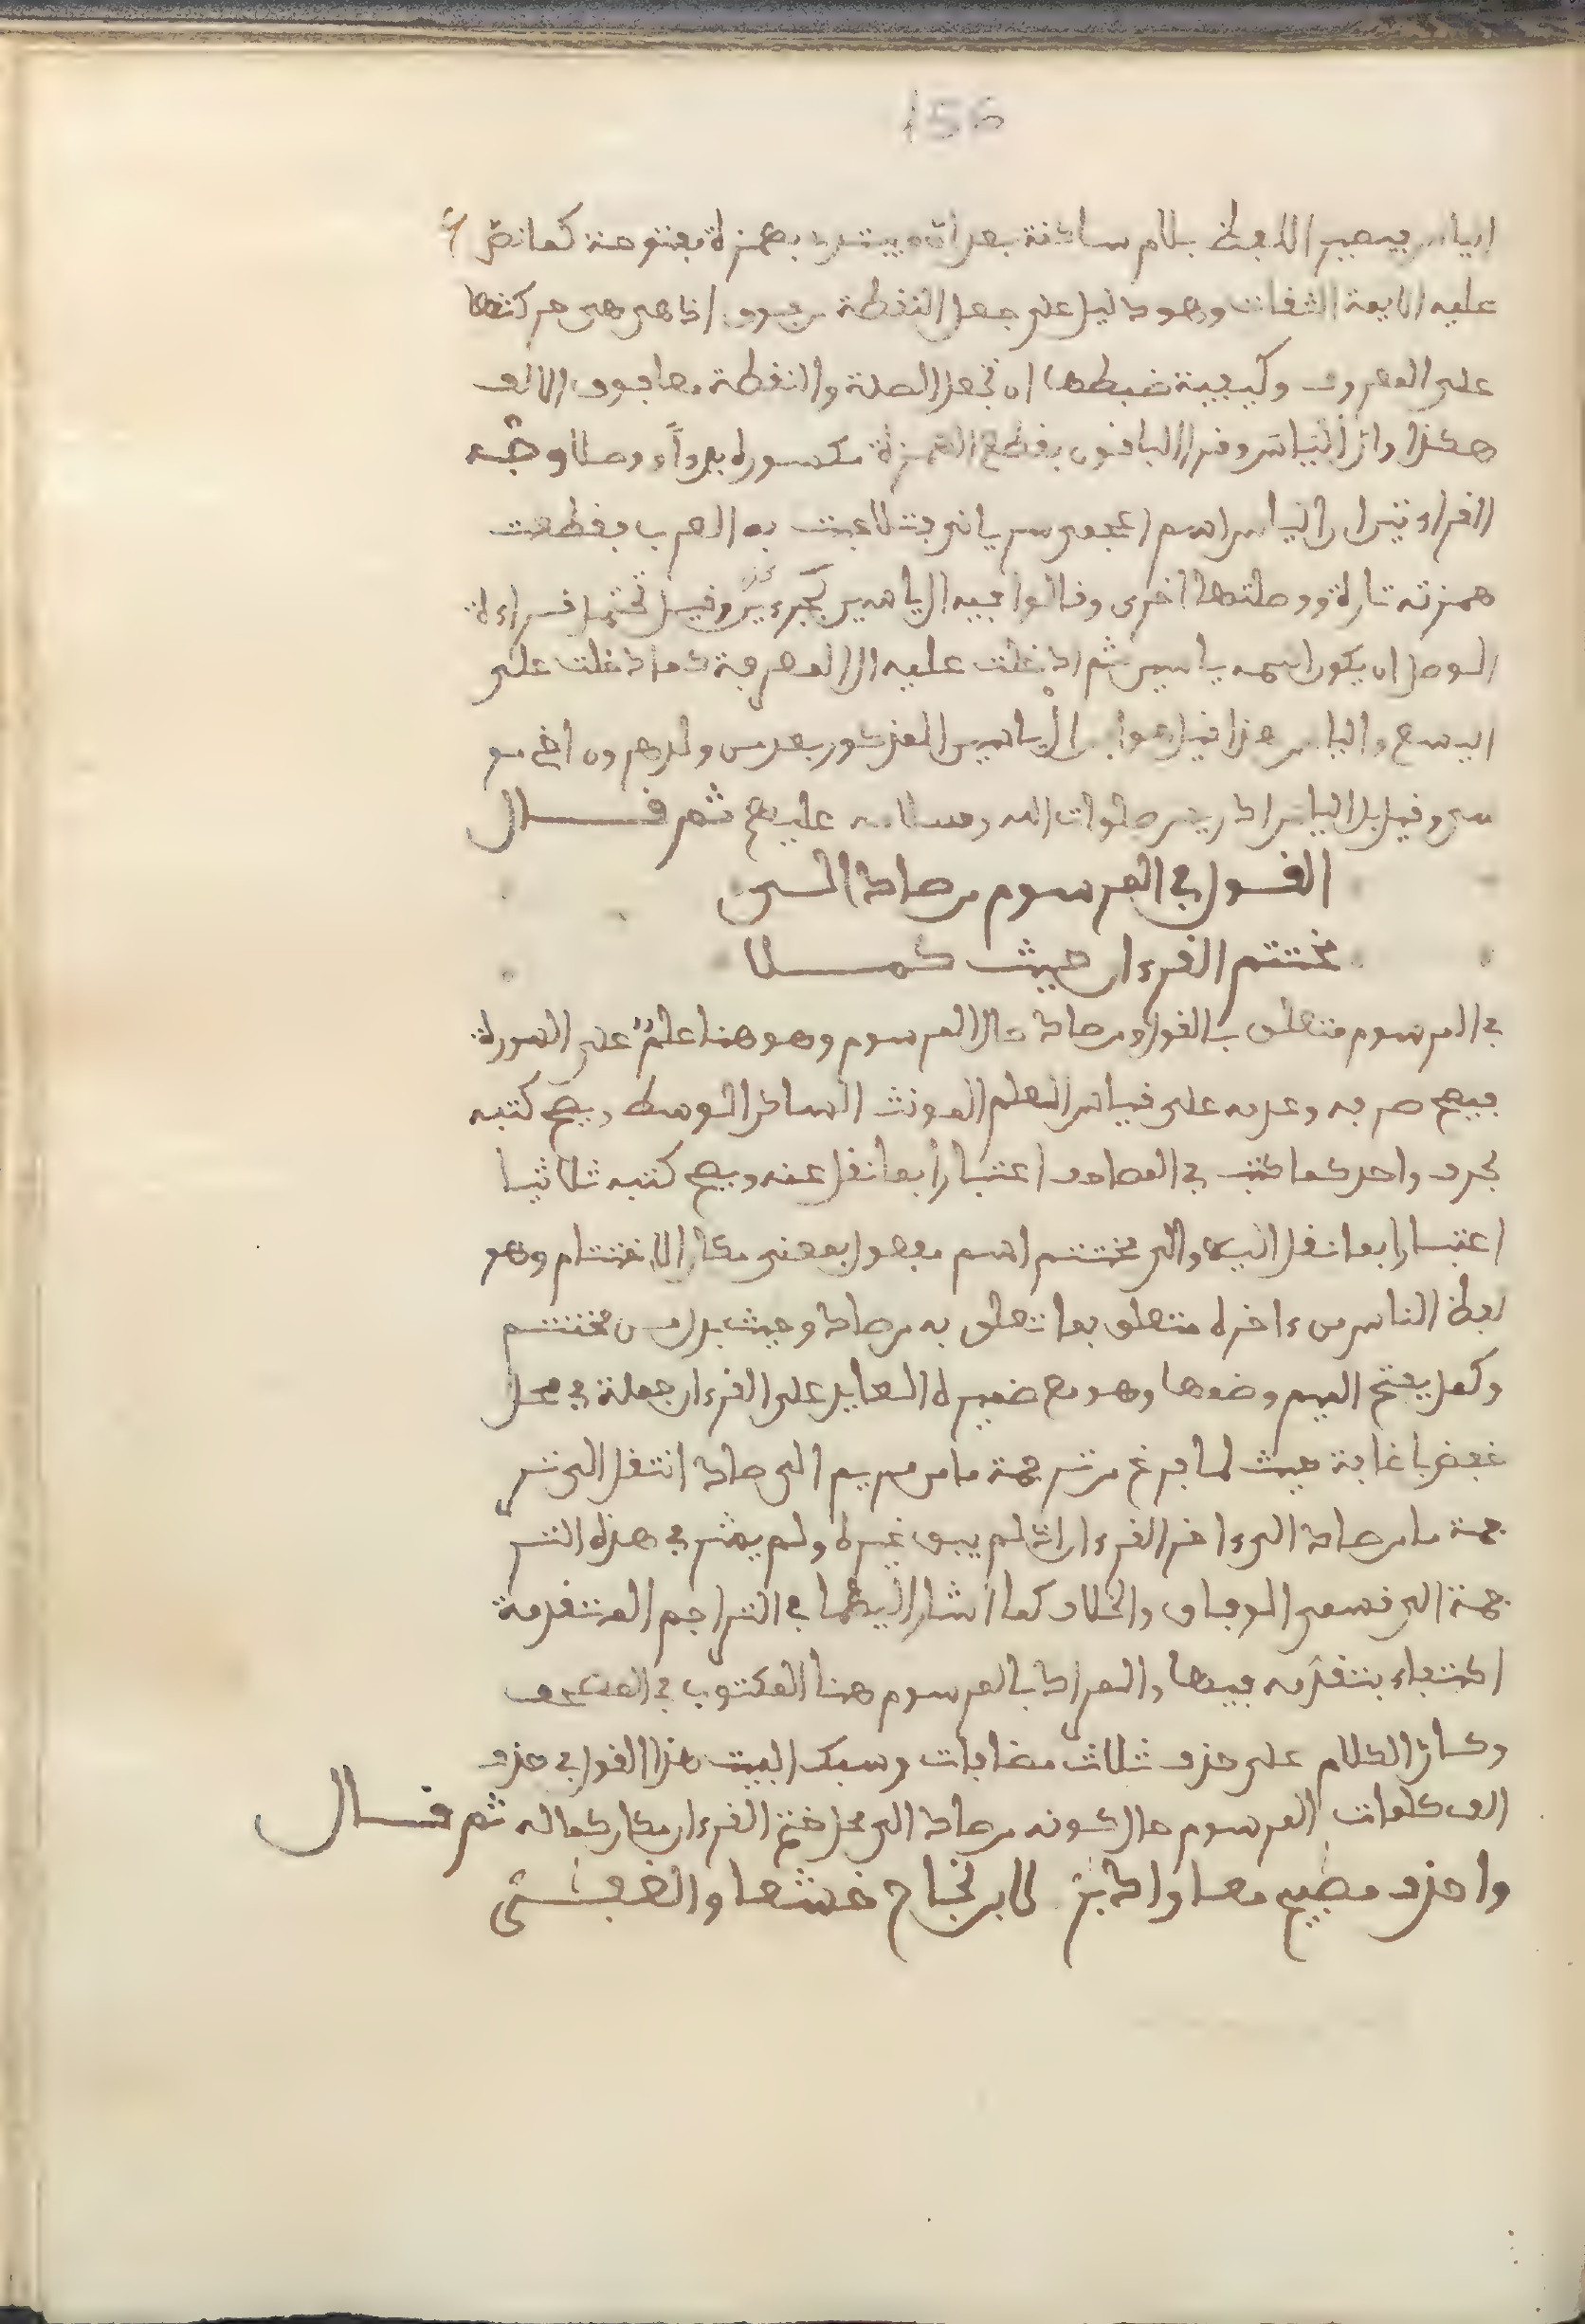 156
الياس فيصير اللفظ بلام ساكنة بعد ان ويبتدئ بهمزة مفتوحة كما نص
عليه الايمة الثقات وهو دليل على جعل النقطة من فوق اذ هي هي حركتها
على المعروف وكيفية ضبطها ان تجعل الصلة والنقطة معا فوق الالف
هكذا وان الياس وقرا الباقون بقطع الهمزة مكسورة بدءا ووصلا وجه
القراءتين ان الياس اسم اعجمي سرياني تلاعبت به العرب فقطعت
همزته تارة ووصلتها اخرى وقالوا فيه الياسين كجبرءين وقيل تحتمل قراءة
الوصل ان يكون اسمه ياسين ثم دخلت عليه ال المعرفة كما دخلت على
اليسع والياس هذا قيل هو ابن الياسين المذكور بعد من ولد هرون اخي مو
سى وقيل بل الياس ادريس صلوات الله وسلامه عليهم ثم قال
القول في المرسوم من صاد الى
مختتم القرءان حيث كملا
في المرسوم متعلق بالقول ومن صاد حال المرسوم وهو هنا علم على السورة
فيصح صرفه وعدمه على قياس العلم المونث الساكن الوسط ويصح كتبه
بحرف واحد كما كتب في المصاحف اعتبارا بما نقل عنه ويصح كتبه ثلاثيا
اعتبارا بما نقل اليه والى مختتم اسم مفعول بمعنى مكان الاختتام وهو
لفظ الناس من ءاخره متعلق بما تعلق به من صاد وحيث بدل من مختتم
وكمل بفتح الميم وضمها وهو مع ضميره العايد على القرءان جملة في محل
خفض باضافة حيث لما فرغ من ترجمة ما من مريم الى صاد انتقل الى تر
جمة ما من صاد الى ءاخر القرءان اذ لم يبق غيره ولم يشر في هذه التر
جمة الى قسمي الوفاق والخلاف كما اشار اليهما في التراجم المتقدمة
اكتفاء بتقدمه فيها والمراد بالمرسوم هنا المكتوب في المصحف
وكان الكلام على حذف ثلاث مضافات وسبك البيت هذا القول في حذف
الف كلمات المرسوم حال كونه من صاد الى محل ختم القرءان مكان كماله ثم قال
واحذف مصابيح معا وادبر لابن نجاح خشعا والغفر